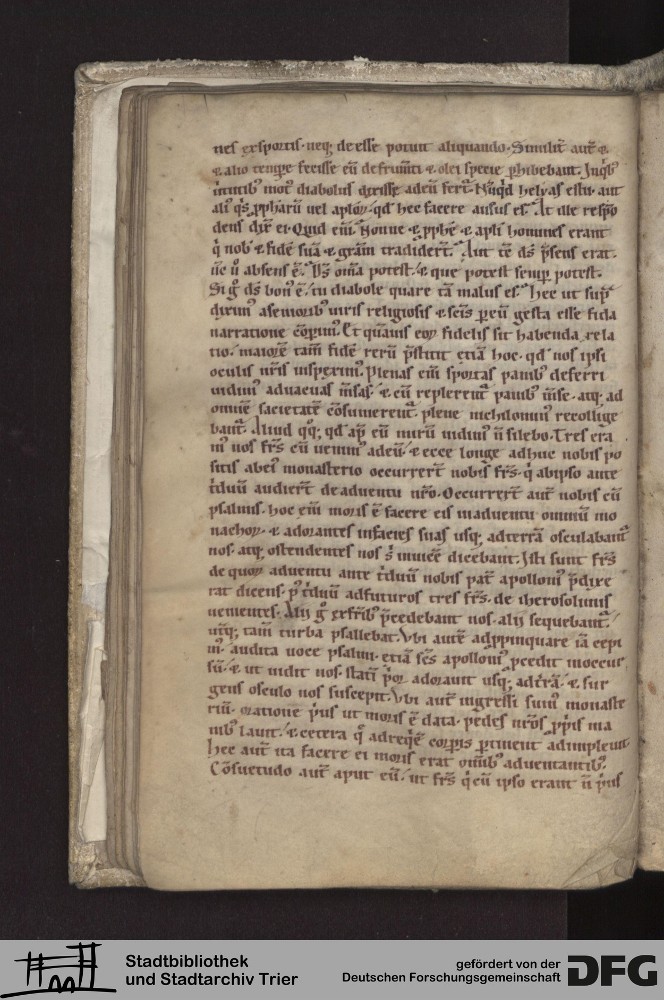 nes exsportis. neq; deesse potuit aliquando. Similit̄ aut̄ ⁊
⁊ alio tempre fecisse eū defrum̄ti ⁊ olei specie phibebant. Inq̄b᷒
intuitib᷒ mot᷒ diabolus dixisse adeū fert̄. Nūq̇d helyas esuı. aut
ali᷒ q̄s ꝓpharū uel aplōꝝ. qd̄ hec facere ausus es. At ille respō
dens dix̄ ei. Quid em̄. Nonne ⁊ ꝓphē ⁊ apl̄i homines erant
q̇ nob᷒ ⁊ fidē suā ⁊ grām tradidert̄. Aut tē ds̄ p̄sens erat.
nc̄ ū absens ē. Ds̄ om̄a potest. ⁊ que potest semp̱ potest.
Si g̊ ds̄ bon᷒ ē. tu diabole quare tā malus es. Hec ut sup̄
dixim᷒ asenioribᷣ uiris religiosis ⁊ sc̄is p̱eū gesta esse fida
narratione cōp̱im᷒. Et quāuis eoꝝ fidelis sit habenda rela
tio. maiorē tam̄ fidē rerū p̄stitit etiā hoc. qd̄ nos ipsi
oculis nr̄is inspexim᷒. Plenas em̄ sportas panib᷒ deferri
uidim᷒ aduacuas m̄sas. ⁊ cū replerent̄ panib᷒ m̄se. atq; ad
omnē sacietatē cōsumerent̄. plene nichilomin᷒ recollige
bant̄. Aliud q̊q; qd̄ ap̄ eū mirū uidim᷒ ñ silebo. Tres era
m᷒ nos fr̄s cū uenim᷒ adeū. ⁊ ecce longe adhuc nobis po
sitis abei᷒ monasterio occurrert̄ nobis fr̄s. q̇ abipso ante
t̄duū audiert̄ deaduentu nr̄o. Occurrert̄ aut̄ nobis cū
psalmis. hoc em̄ moris ē facere eis inaduentu omniū mo
nachoꝝ. ⁊ adorantes infacies suas usq; adterrā osculabant̄
nos. atq; ostendentes nos s̄ inuicē dicebant. Isti sunt fr̄s
de quoꝝ aduentu ante t̄duū nobis pat̄ apolloni᷒ p̄dixe
rat dicens. p᷒ t̄duū adfuturos tres fr̄s. de iherosolimis
uenientes. Alij g̊ exfr̄ib᷒ p̄cedebant nos. alij sequebant̄.
ut̄q; tam̄ turba psallebat. Vbi aut̄ adꝓpinquare iā cepi
m᷒. audita uoce psalm. etiā sc̄s apolloni᷒ ꝓcedit inoccur
sū. ⁊ ut uidit nos. statī p̄or adorauit usq; adt̄rā. ⁊ sur
gens osculo nos suscepit. Vbi aut̄ ingressi sum᷒ monaste
riū. oratione p̄us ut moris ē data. pedes nr̄os ꝓp̄is ma
nib᷒ lauit. ⁊ cetera q̄ adreq̇ē corp̱is p̱tinent adimpleuit.
Hec aut̄ ita facere ei moris erat omnib᷒ aduentantib᷒.
Cōsuetudo aut̄ aput eū. ut fr̄s q̇ cū ipso erant ñ p̄us
Stadtbibliothek
und Stadtarchiv Trier
gefördert von der
Deutschen Forschungsgemeinschaft
DFG